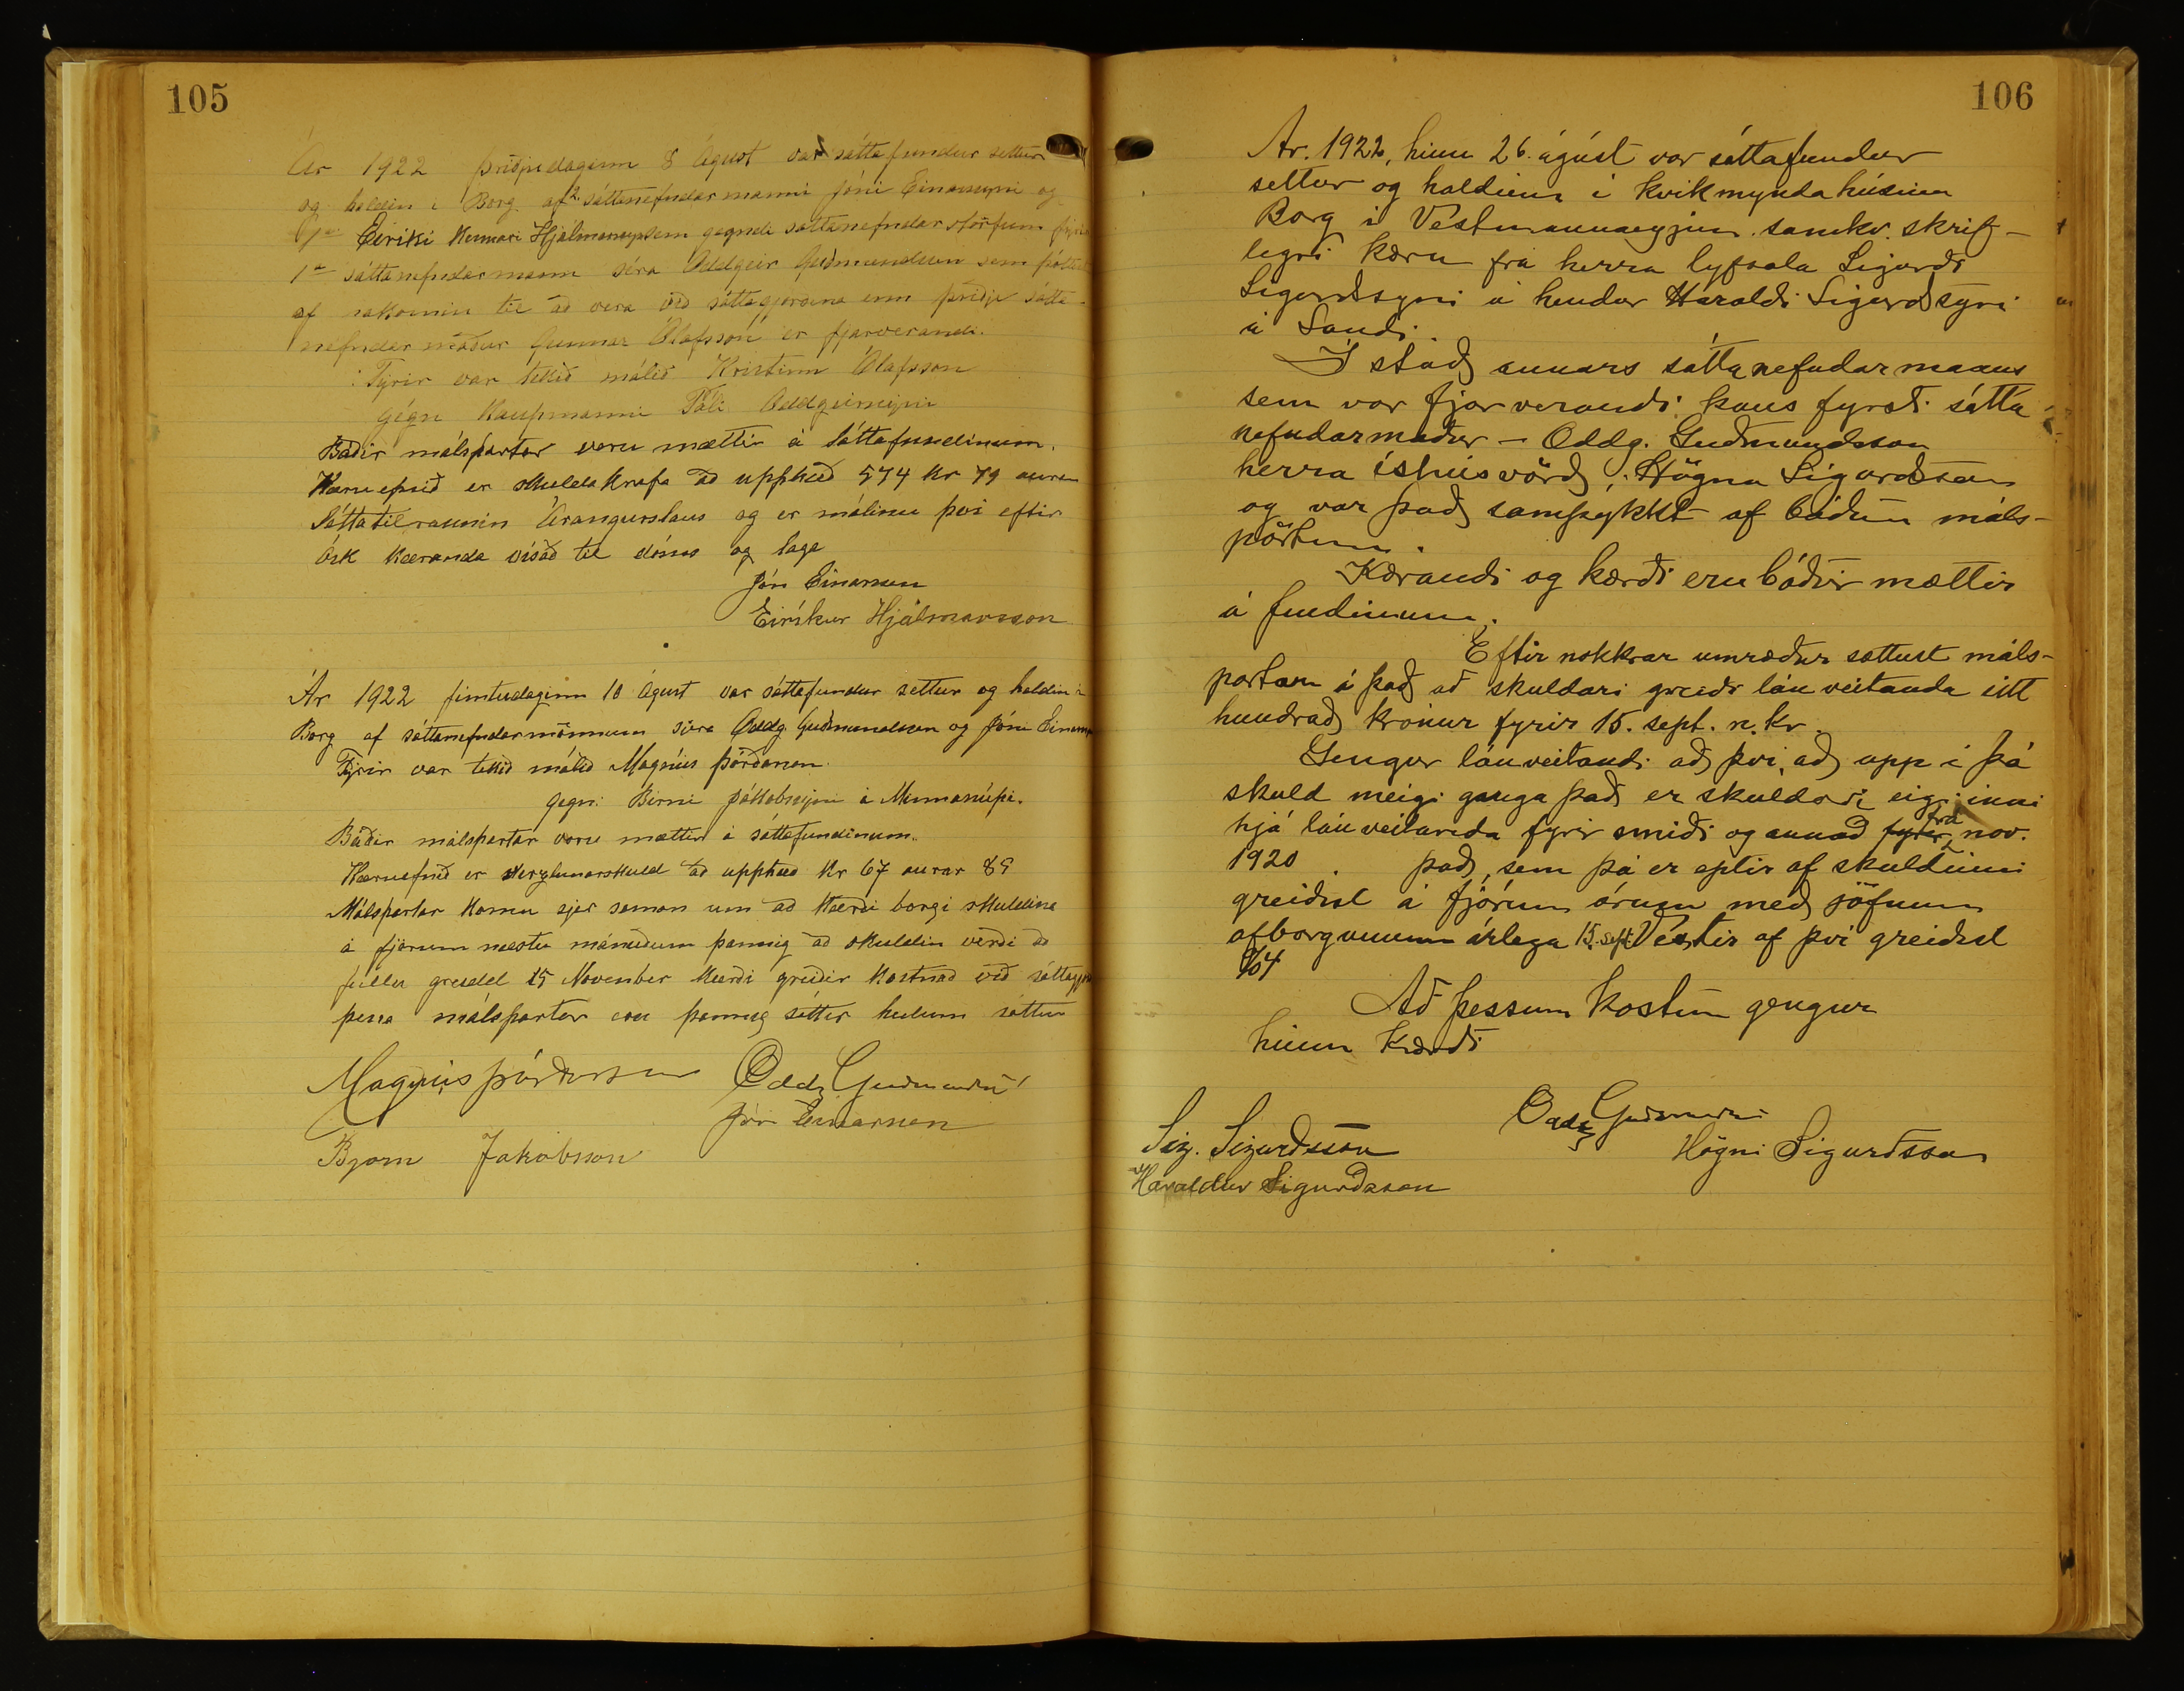 105
Ár 1922 þriðjudaginn 8 Ágúst var sáttafundur settur
og haldin í Borg af 2. sáttanefndarmanni Jóni Einarssyni og
Eiríki Kennari Hjálmarssyni sem gegndi sáttanefndarstörfum fyrir
1a sáttanefndarmann séra Oddgeir Guðmundsson sem
af sökominn til að vera við sáttagjörðina enn þriðji sátta-
nefndarmaður Gunnar Ólafsson er fjarverandi.
Fyrir var tekið málið Kristinn Ólafsson
gegn Kaupmanni Páli Oddgeirssyni
Báðir málspartar voru mættir á Sáttafundinum.
Kæruefnið er skuldakrafa að upphæð 574 kr 79 aura
Sáttatilraunin Árangurslaus og er málinu því eftir
ósk kæranda vísað til dóms og laga
Jón Einarsson
Eiríkur Hjálmarsson
Ár 1922 fimtudaginn 10 Ágúst var sáttafundur settur og haldin í
Borg af sáttanefndarmönnum séra Oddg. Guðmundssen og Jóni Einarss
Fyrir var tekið málið Magnús Þórðarson
gegn: Birni Jakobssyni á Minnanúpi.
Báðir málspartar voru mættir á sáttafundinum.
Kæruefnið er verzlunarskuld að upphæð kr 67 aurar 89
Málspartar komu sjer saman um að kærði borgi skuldina
á fjórum næstu mánuðum þannig að skuldin verði að
fullu greidd 15 November kærði greiðir kostnað við sáttagjörð
þessa málspartar eru þannig sáttir heilum sáttum
Magnús Þórðarson Oddg Guðmundsen
Jón Einarsson
Bjorn Jakobsson
106
Ár. 1922, hinn 26. ágúst var sáttafundur
settur og haldinn í kvikmyndahúsinu
Borg í Vestmannaeyjum samkv. skrif-
legri kæru frá herra lyfsala Sigurði
Sigurdssyni á hendur Haraldi Sigurdssyni
á Sandi.
Í stað annars sáttanefndarmanns
sem var fjarverandi kaus fyrsti sátta
nefndarmaður - Oddg. Guðmundsson
herra íshúsvörð, Högna Sigurdsson
og var það samþykkt af báðum máls-
pörtum.
Kærandi og kærði eru báðir mættir
á fundinum.
Eftir nokkrar umræður sættust máls-
partarn á það að skuldari greiði lánveitanda eitt
hundrað krónur fyrir 15. sept. n. kr.
Gengur lánveitandi að því, að upp í þá
skuld meigi ganga það er skuldari eigi inni
hjá lánveitanda fyrir smiði og annað fyrir frá nov.
1920. það, sem þá er eptir af skuldinni
greiðist á fjórum árum með jöfnum
afborgunum árlega 15. sept. Vextir af því greiðist
%4
Að þessum kostum gengur
hinn kærði
Oddg Guðmunds
Sig. Sigurdsson
Högni Sigurðsson
Haraldur Sigurðsson